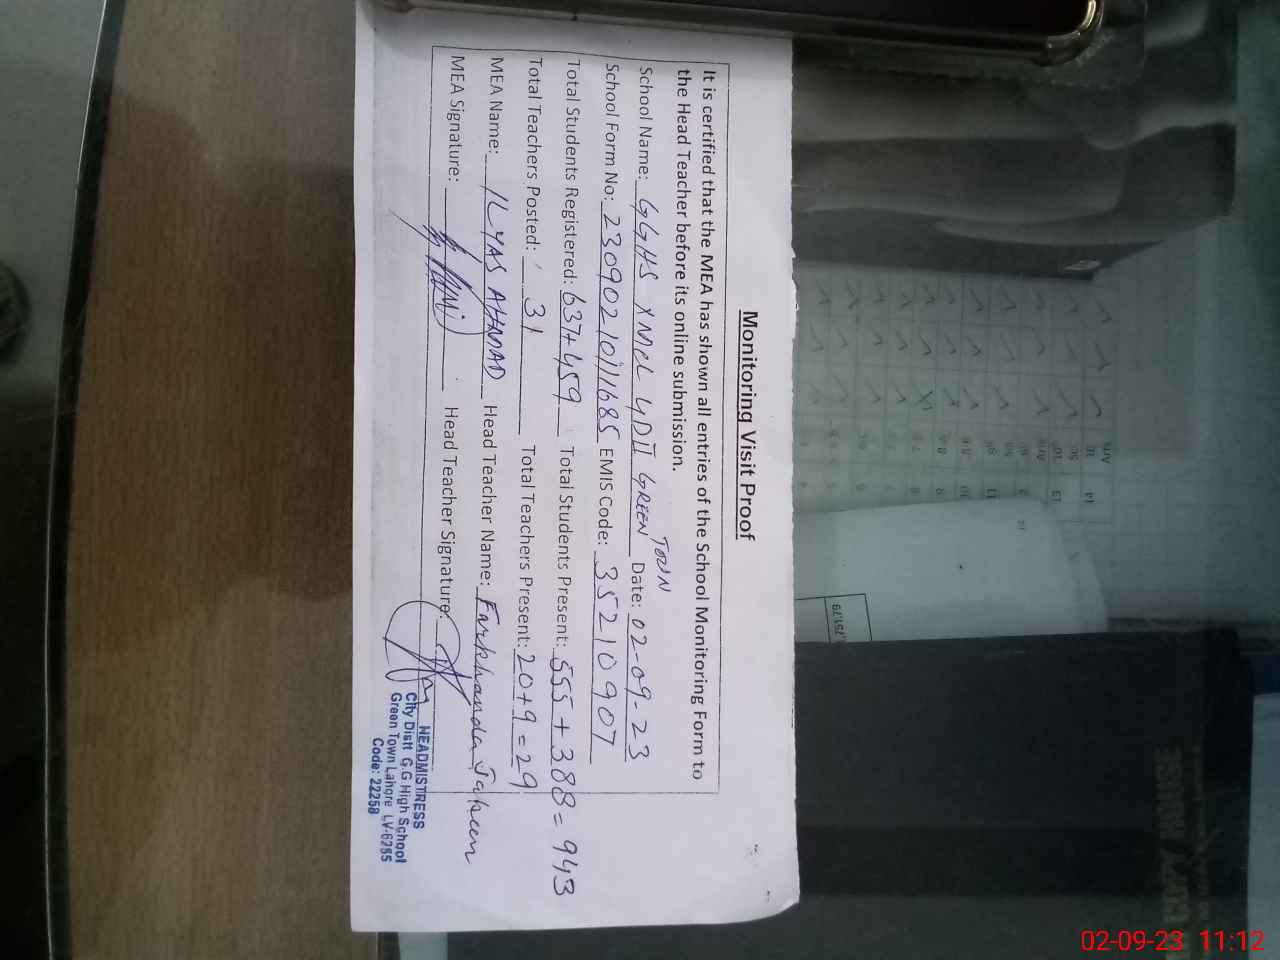 Monitoring Visit Proof
It is certified that the MEA has shown all entries of the School Monitoring Form to
the Head Teacher before its online submission.
School Name: GGHS XMCL 4DII GREEN TOWN Date: 02-09-23
School Form No: 2309021011685 EMIS Code: 35210907
Total Students Registered: 637+459 Total Students Present: 555+388=943
Total Teachers Posted: 31 Total Teachers Present: 20+9=29
MEA Name: ILYAS AHMAD Head Teacher Name: Farkhanda
MEA Signature: Head Teacher Signature:
HEADMISTRESS
City Distt G.G High School
Green Town Lahore LV-6255
Code: 22258
02-09-23 11:12